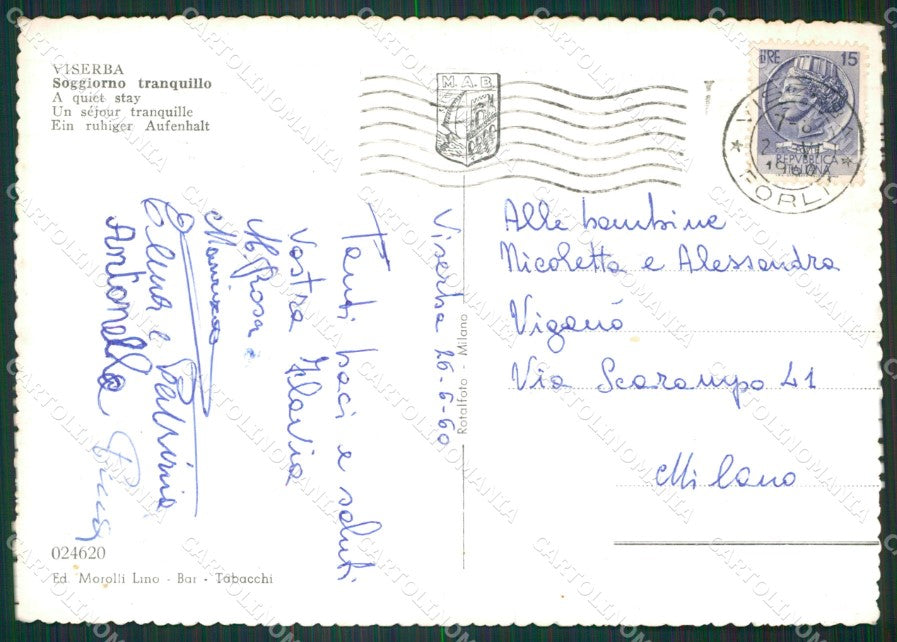 VISERBA
Soggiorno tranquillo
A quiet stay
Un séjour tranquille
Ein ruhiger Aufenhalt
M.A.B.
LIRE 15
REPVBBLICA
ITALIANA
1960
FORLI
Viserba 26-6-60
Tanti baci e saluti
Vostra Flavia
M. Rosa
Marinas
Elena e Patrizia
Antonella
Alle bambine
Nicoletta e Alessandra
Viganò
Via Scarampo 41
Milano
Rotalfoto - Milano
024620
Ed. Morolli Lino - Bar - Tabacchi
CARTOLINOMANIA